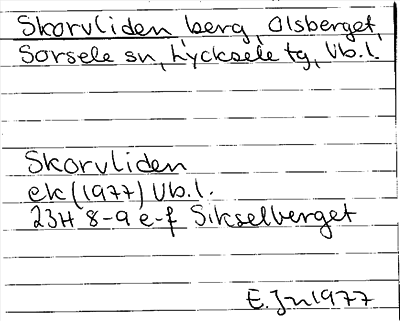 Skorvliden, berg, Olsberget,
Sorsele sn, Lycksele tg, Vb.l.
Skorvliden
ek (1977) Vb.l.
23H 8-9 e-f Sikselberget
E. Jn 1977